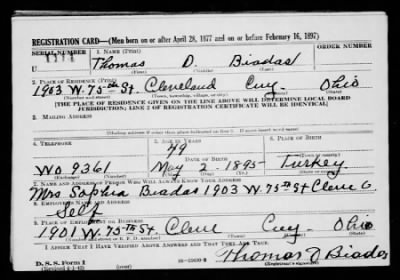 REGISTRATION CARD—(Men born on or after April 28, 1877 and on or before February 16, 1897)
SERIAL NUMBER 1. NAME (Print) ORDER NUMBER
U Thomas D. Biadas
(First) (Middle) (Last)
2. PLACE OF RESIDENCE (Print)
1903 W. 75th St. Cleveland Cuy. Ohio
(Number and street) (Town, township, village, or city) (County) (State)
[THE PLACE OF RESIDENCE GIVEN ON THE LINE ABOVE WILL DETERMINE LOCAL BOARD
JURISDICTION; LINE 2 OF REGISTRATION CERTIFICATE WILL BE IDENTICAL]
3. MAILING ADDRESS
[Mailing address if other than place indicated on line 2. If same insert word same]
4. TELEPHONE 5. AGE IN YEARS 6. PLACE OF BIRTH
DATE OF BIRTH
WO 9361 May 2 1895 Turkey
(Exchange) (Number) (Mo.) (Day) (Yr.) (State or country)
7. NAME AND ADDRESS OF PERSON WHO WILL ALWAYS KNOW YOUR ADDRESS
Mrs. Sophia Biadas 1903 W. 75th St Cleve O.
8. EMPLOYER'S NAME AND ADDRESS
Self
9. PLACE OF EMPLOYMENT OR BUSINESS
1901 W. 75th St. Cleve Cuy. Ohio
(Number and street or R. F. D. number) (Town) (County) (State)
I AFFIRM THAT I HAVE VERIFIED ABOVE ANSWERS AND THAT THEY ARE TRUE.
D. S. S. Form 1
Thomas D Biadas